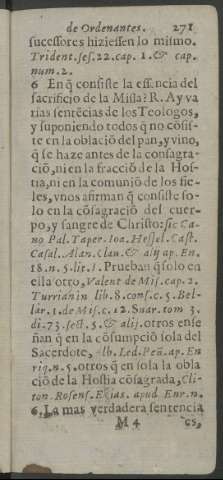 de Ordenantes. 271
sucessores hiziessen lo mismo.
Trident. ses. 22. cap. 1. & cap.
num. 2.
6 En q̃ consiste la essẽcia del
sacrificio de la Missa: R. Ay va
rias sentẽcias de los Teologos,
y suponiendo todos q̃ no cõsis-
te en la oblaciõ del pan, y vino,
q̃ se haze antes de la consagra-
ciõ, ni en la fracciõ de la Hos-
tia, ni en la comuniõ de los fie-
les, vnos afirman q̃ consiste so-
lo en la cõsagraciõ del cuer-
po, y sangre de Christo: sic Ca-
no Pal. Taper. Ioa. Hessel. Cast.
Casal. Alan. Clan. & alij ap. En.
18. n. 5. lit. I. Prueban q̃ solo en
ella otro, Valent de Mis. cap. 2.
Turrianin lib. 8. cons. c. 5. Bel-
lar. 1. de Mis. c. 12. Suar. tom 3.
di. 73. sect. 5. & alij. otros ense
ñan q̃ en la cõsumpciõ sola del
Sacerdote, Alb. Led. Peñ. ap. En
riq. n. 5. otros q̃ en sola la obla
ciõ de la Hostia cõsagrada, Clic-
ton. Rosens. Exias. apud Enr. n.
6. La mas verdadera sentencia
M 4 es,